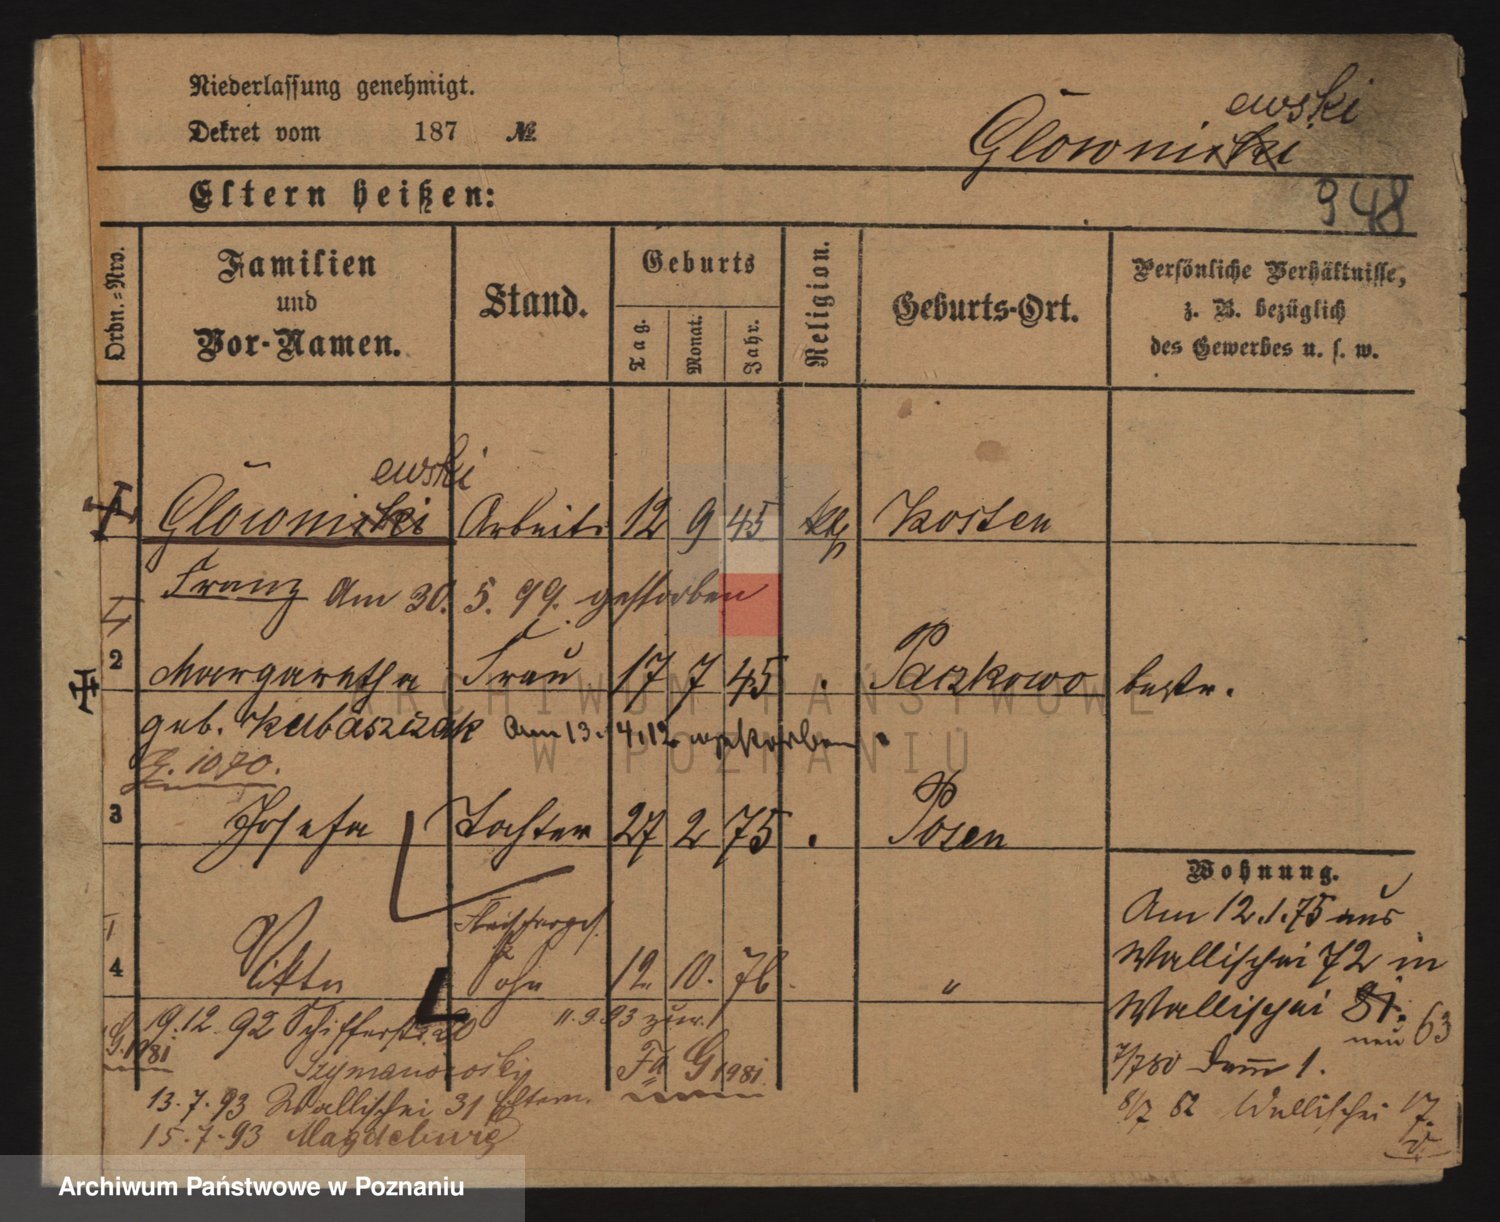 Niederlassung genehmigt.
Dekret vom 187 №
ewski
Glowniki
948
Eltern heißen:
Ordn.-Nro.
Familien
und
Vor-Namen.
Stand.
Geburts
Tag.
Monat.
Jahr.
Religion.
Geburts-Ort.
Persönliche Verhältnisse,
z. B. bezüglich
des Gewerbes u. s. w.
ewski
Glowniki Arbeitr 12 9 45 kth Kosten
Franz Am 30. 5. 99. gestorben
2 Margaretha Frau 17 7 45 . Paczkowo bestr.
geb. Kubaszczak Am 13. 4. 12 verstorben
G. 1070.
3 Josefa Tochter 27 2 75 . Posen
Wohnung.
Am 12.1.75 aus
Wallischei 72 in
Wallischei 81.
neu 63
7/7 80 Damm 1.
8/7 82 Wallischei 17.
Fleischerges.
4 Viktor Sohn 12. 10. 76 "
19.12.92 Schifferstr. 20 11.9.93 zur.
G. 1981 Szymanowski Fa G 1981
13.7.93 Wallischei 31 Eltern.
15.7.93 Magdeburg
ARCHIWUM PAŃSTWOWE
W POZNANIU
Archiwum Państwowe w Poznaniu